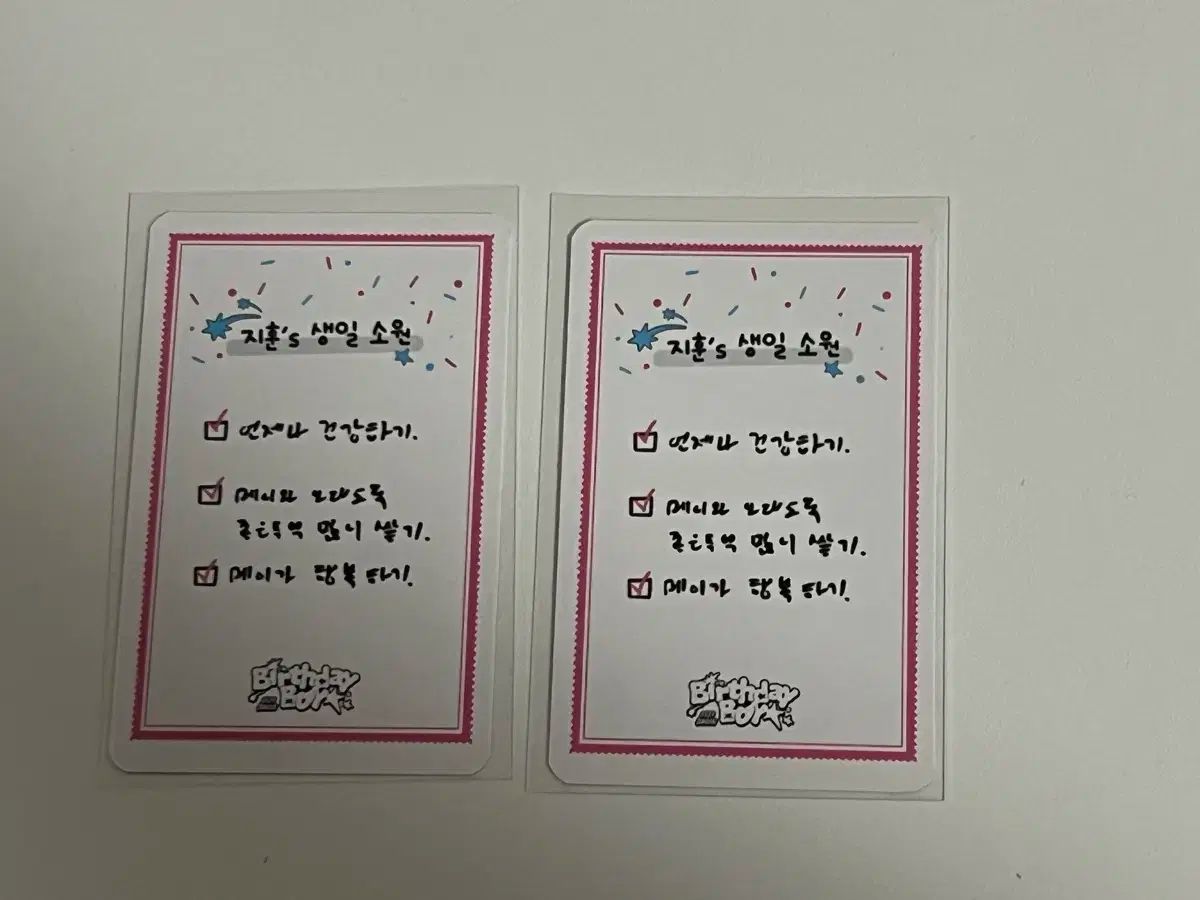 지훈's 생일 소원
언제나 건강하기.
메이와 오래도록
좋은추억 많이 쌓기.
메이가 행복하기.
Birthday
BOY
지훈's 생일 소원
언제나 건강하기.
메이와 오래도록
좋은추억 많이 쌓기.
메이가 행복하기.
Birthday
BOY